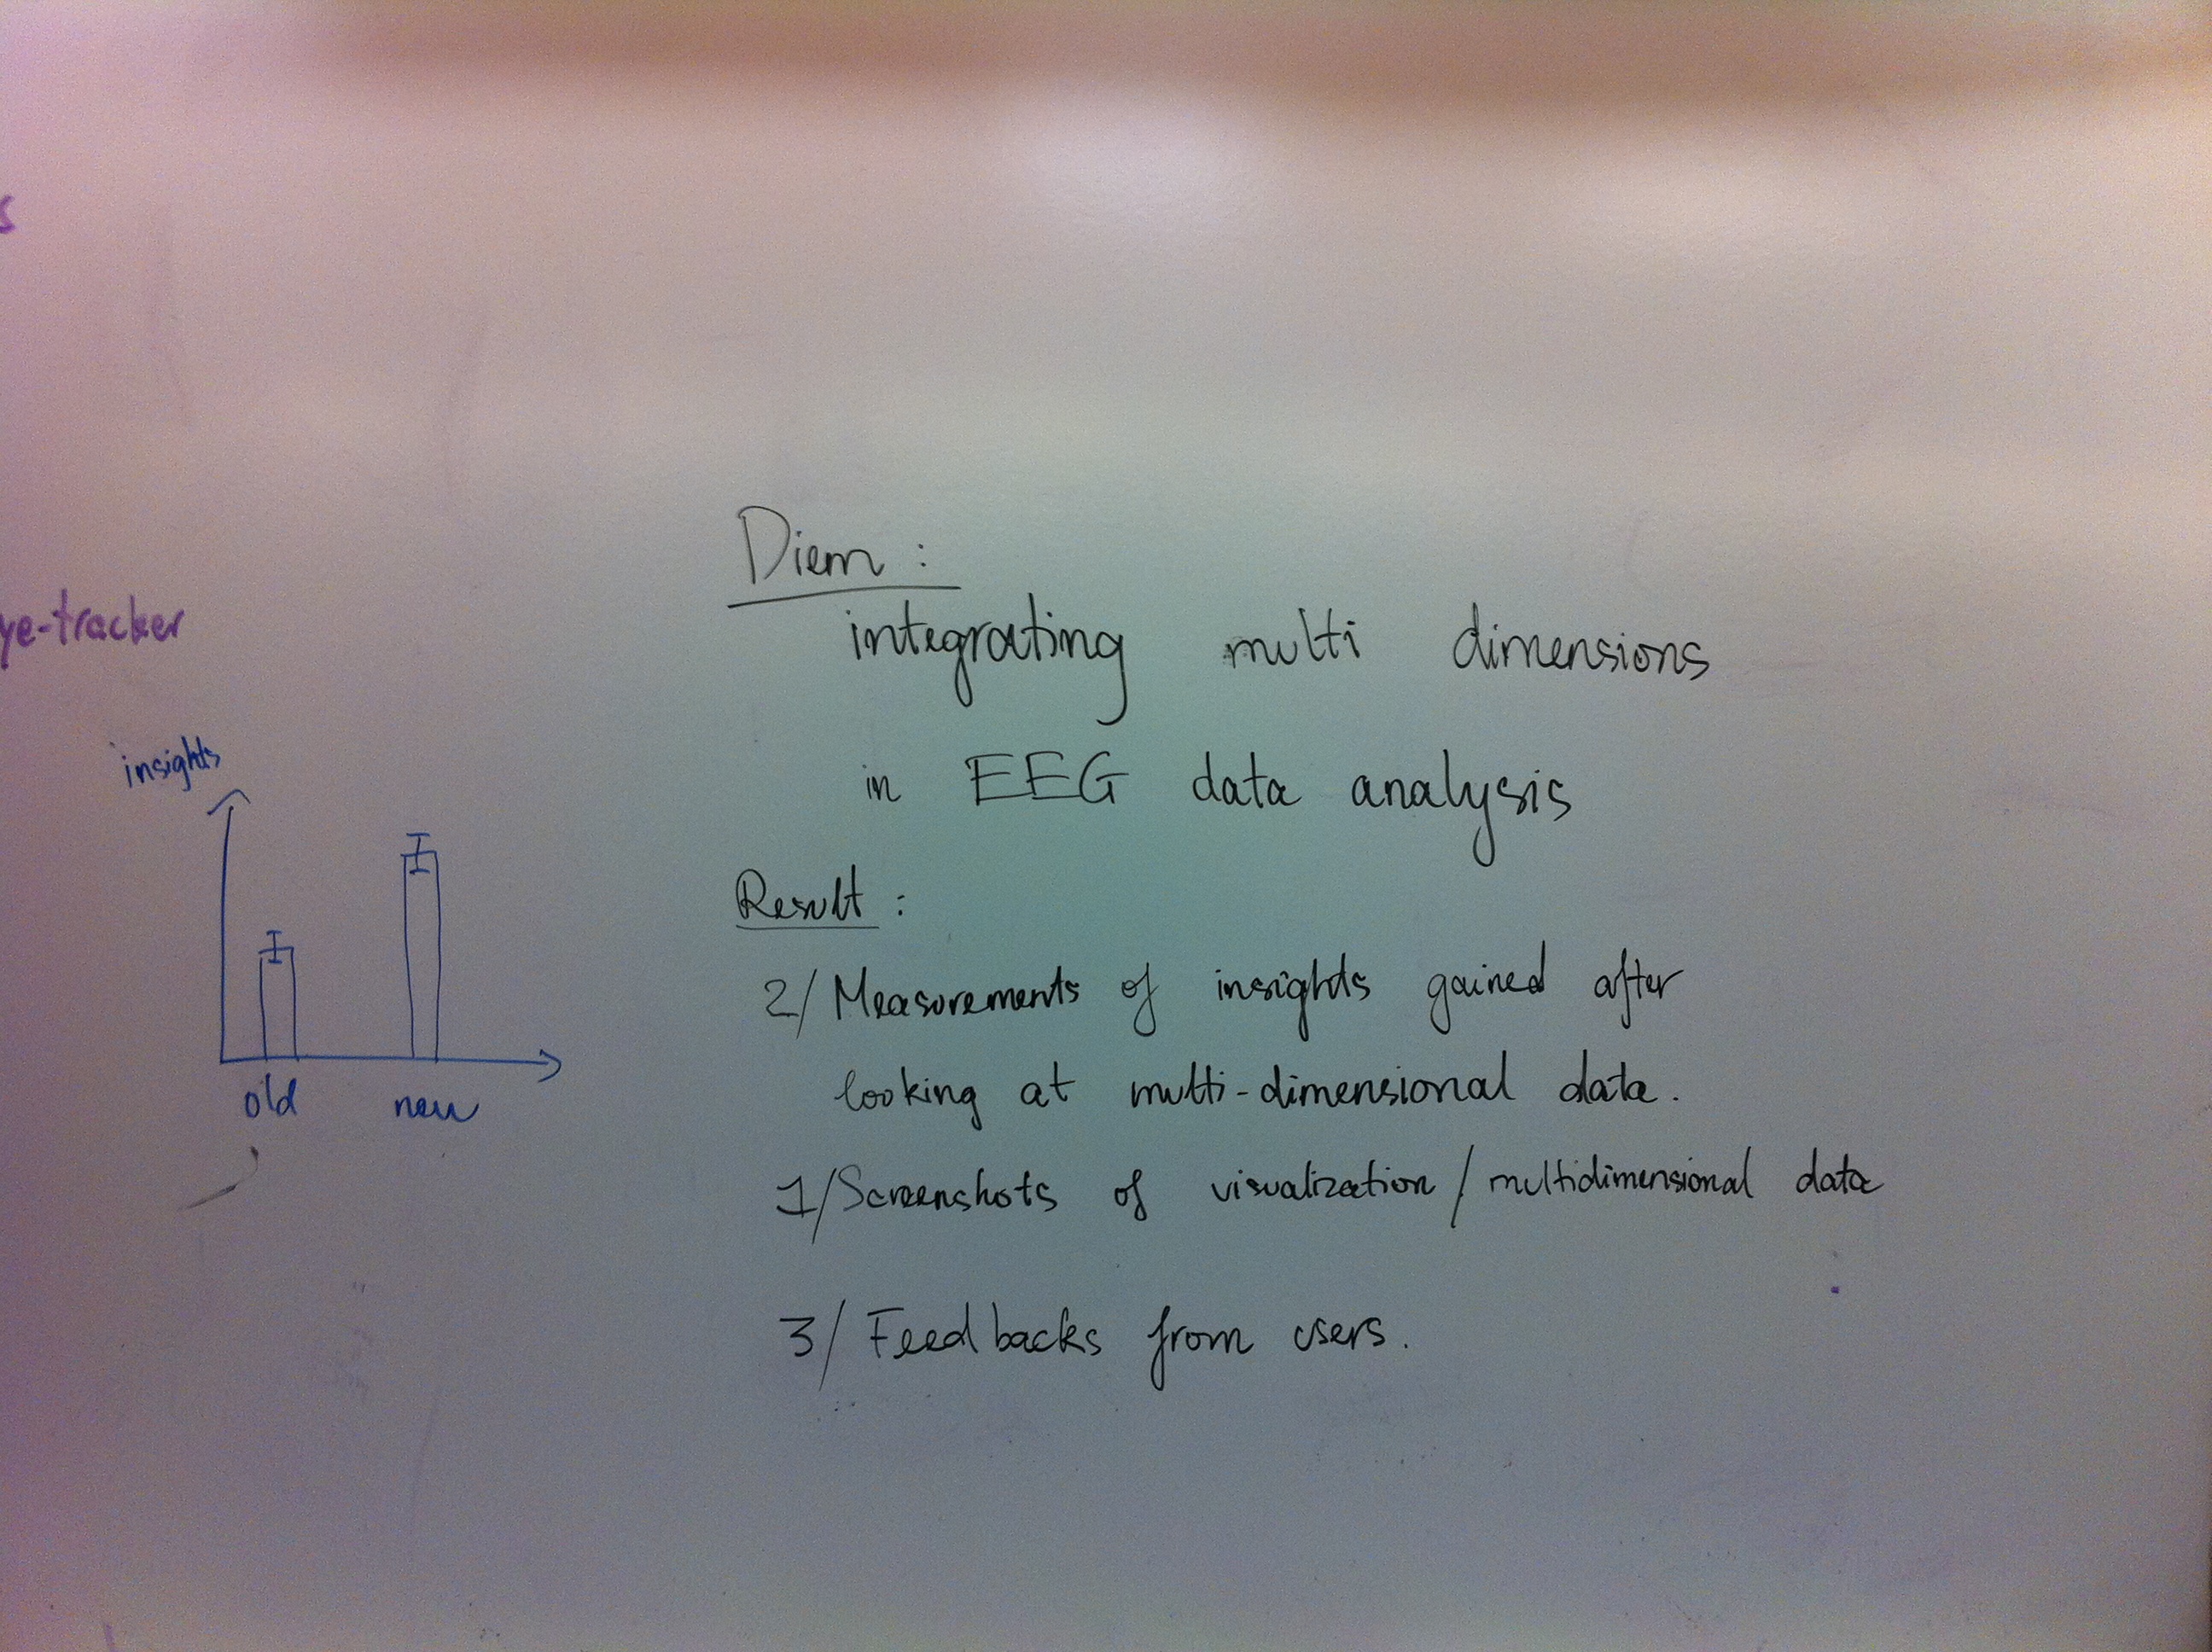 s
ye-tracker
insights
old new
Diem :
integrating multi dimensions
in EEG data analysis
Result :
2/ Measurements of insights gained after
looking at multi-dimensional data.
1/ Screenshots of visualization / multidimensional data
3/ Feedbacks from users.